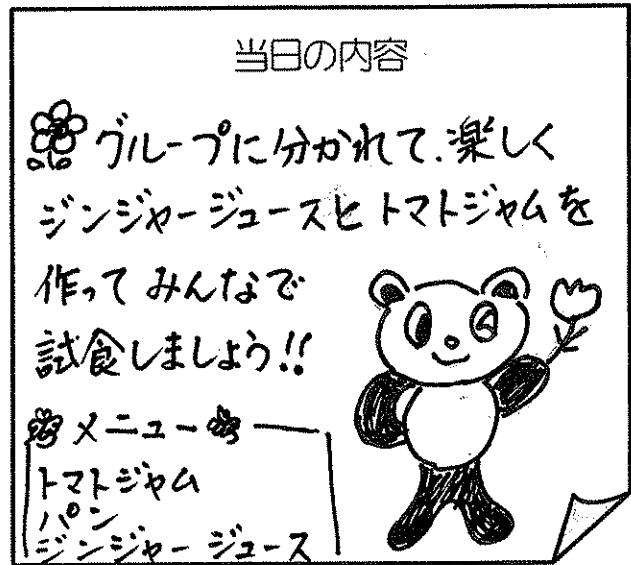 当日の内容
グループに分かれて、楽しく
ジンジャージュースとトマトジャムを
作ってみんなで
試食しましょう!!
メニュー
トマトジャム
パン
ジンジャージュース